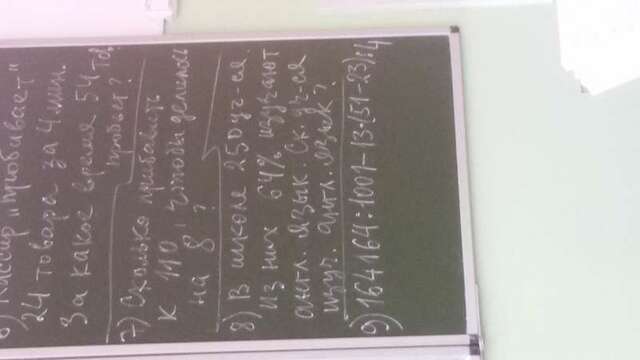 6) Кассир „пробивает"
24 товара за 4 мин.
За какое время 54 тов.
пробьет?
7) Сколько прибавить
к 110, чтобы делилось
на 8 ?
8) В школе 250 уч-ся.
из них 64% изучают
англ. язык. Ск. уч-ся
изуч. англ. язык?
9) 164164:1001-13·(51-23):4